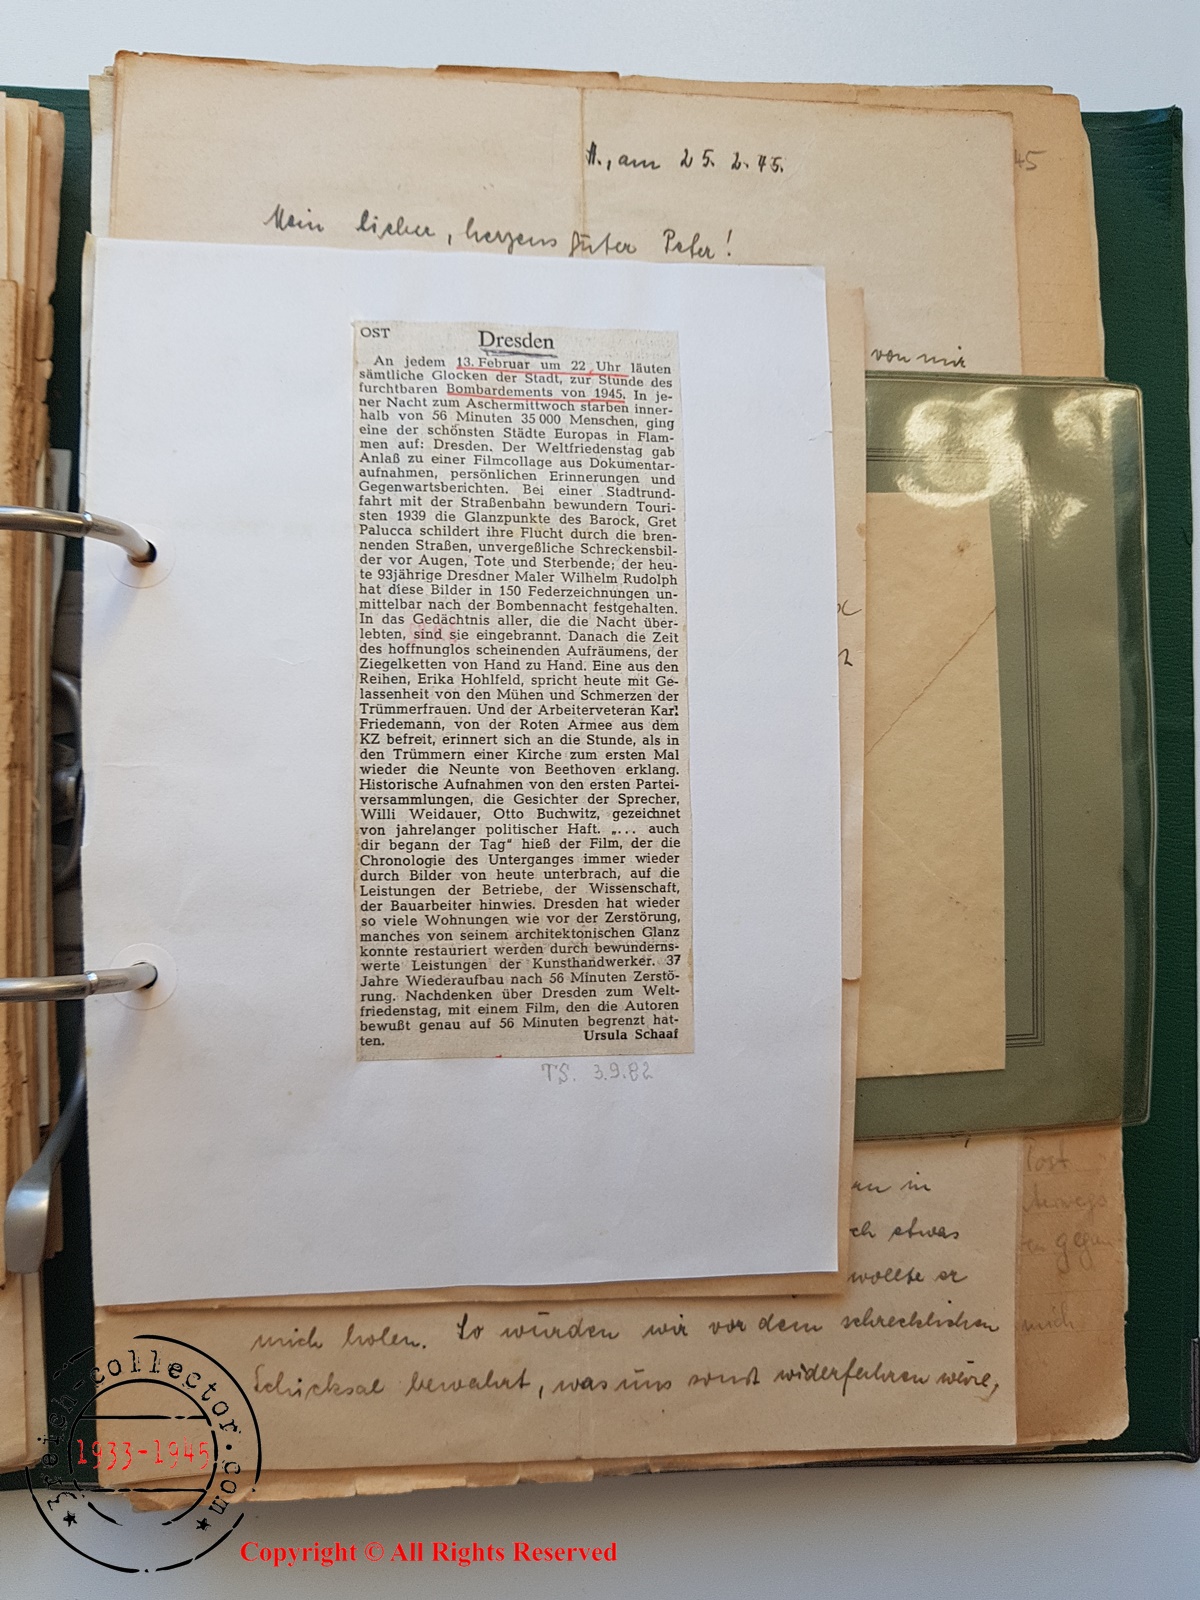 A., am 25. 2. 45.
45
Mein lieber, herzensguter Peter!
von mir
OST
Dresden
An jedem 13. Februar um 22 Uhr läuten
sämtliche Glocken der Stadt, zur Stunde des
furchtbaren Bombardements von 1945. In je-
ner Nacht zum Aschermittwoch starben inner-
halb von 56 Minuten 35 000 Menschen, ging
eine der schönsten Städte Europas in Flam-
men auf: Dresden. Der Weltfriedenstag gab
Anlaß zu einer Filmcollage aus Dokumentar-
aufnahmen, persönlichen Erinnerungen und
Gegenwartsberichten. Bei einer Stadtrund-
fahrt mit der Straßenbahn bewundern Touri-
sten 1939 die Glanzpunkte des Barock, Gret
Palucca schildert ihre Flucht durch die bren-
nenden Straßen, unvergeßliche Schreckensbil-
der vor Augen, Tote und Sterbende; der heu-
te 93jährige Dresdner Maler Wilhelm Rudolph
hat diese Bilder in 150 Federzeichnungen un-
mittelbar nach der Bombennacht festgehalten.
In das Gedächtnis aller, die die Nacht über-
lebten, sind sie eingebrannt. Danach die Zeit
des hoffnunglos scheinenden Aufräumens, der
Ziegelketten von Hand zu Hand. Eine aus den
Reihen, Erika Hohlfeld, spricht heute mit Ge-
lassenheit von den Mühen und Schmerzen der
Trümmerfrauen. Und der Arbeiterveteran Karl
Friedemann, von der Roten Armee aus dem
KZ befreit, erinnert sich an die Stunde, als in
den Trümmern einer Kirche zum ersten Mal
wieder die Neunte von Beethoven erklang.
Historische Aufnahmen von den ersten Partei-
versammlungen, die Gesichter der Sprecher,
Willi Weidauer, Otto Buchwitz, gezeichnet
von jahrelanger politischer Haft. „... auch
dir begann der Tag" hieß der Film, der die
Chronologie des Unterganges immer wieder
durch Bilder von heute unterbrach, auf die
Leistungen der Betriebe, der Wissenschaft,
der Bauarbeiter hinwies. Dresden hat wieder
so viele Wohnungen wie vor der Zerstörung,
manches von seinem architektonischen Glanz
konnte restauriert werden durch bewunderns-
werte Leistungen der Kunsthandwerker. 37
Jahre Wiederaufbau nach 56 Minuten Zerstö-
rung. Nachdenken über Dresden zum Welt-
friedenstag, mit einem Film, den die Autoren
bewußt genau auf 56 Minuten begrenzt hat-
ten. Ursula Schaaf
TS. 3.9.82
Post
in
etwas
wollte er
mich holen. So würden wir vor dem schrecklichen
mich
Schicksal bewahrt, was uns sonst widerfahren wäre,
3reich-collector.com
1933-1945
Copyright © All Rights Reserved